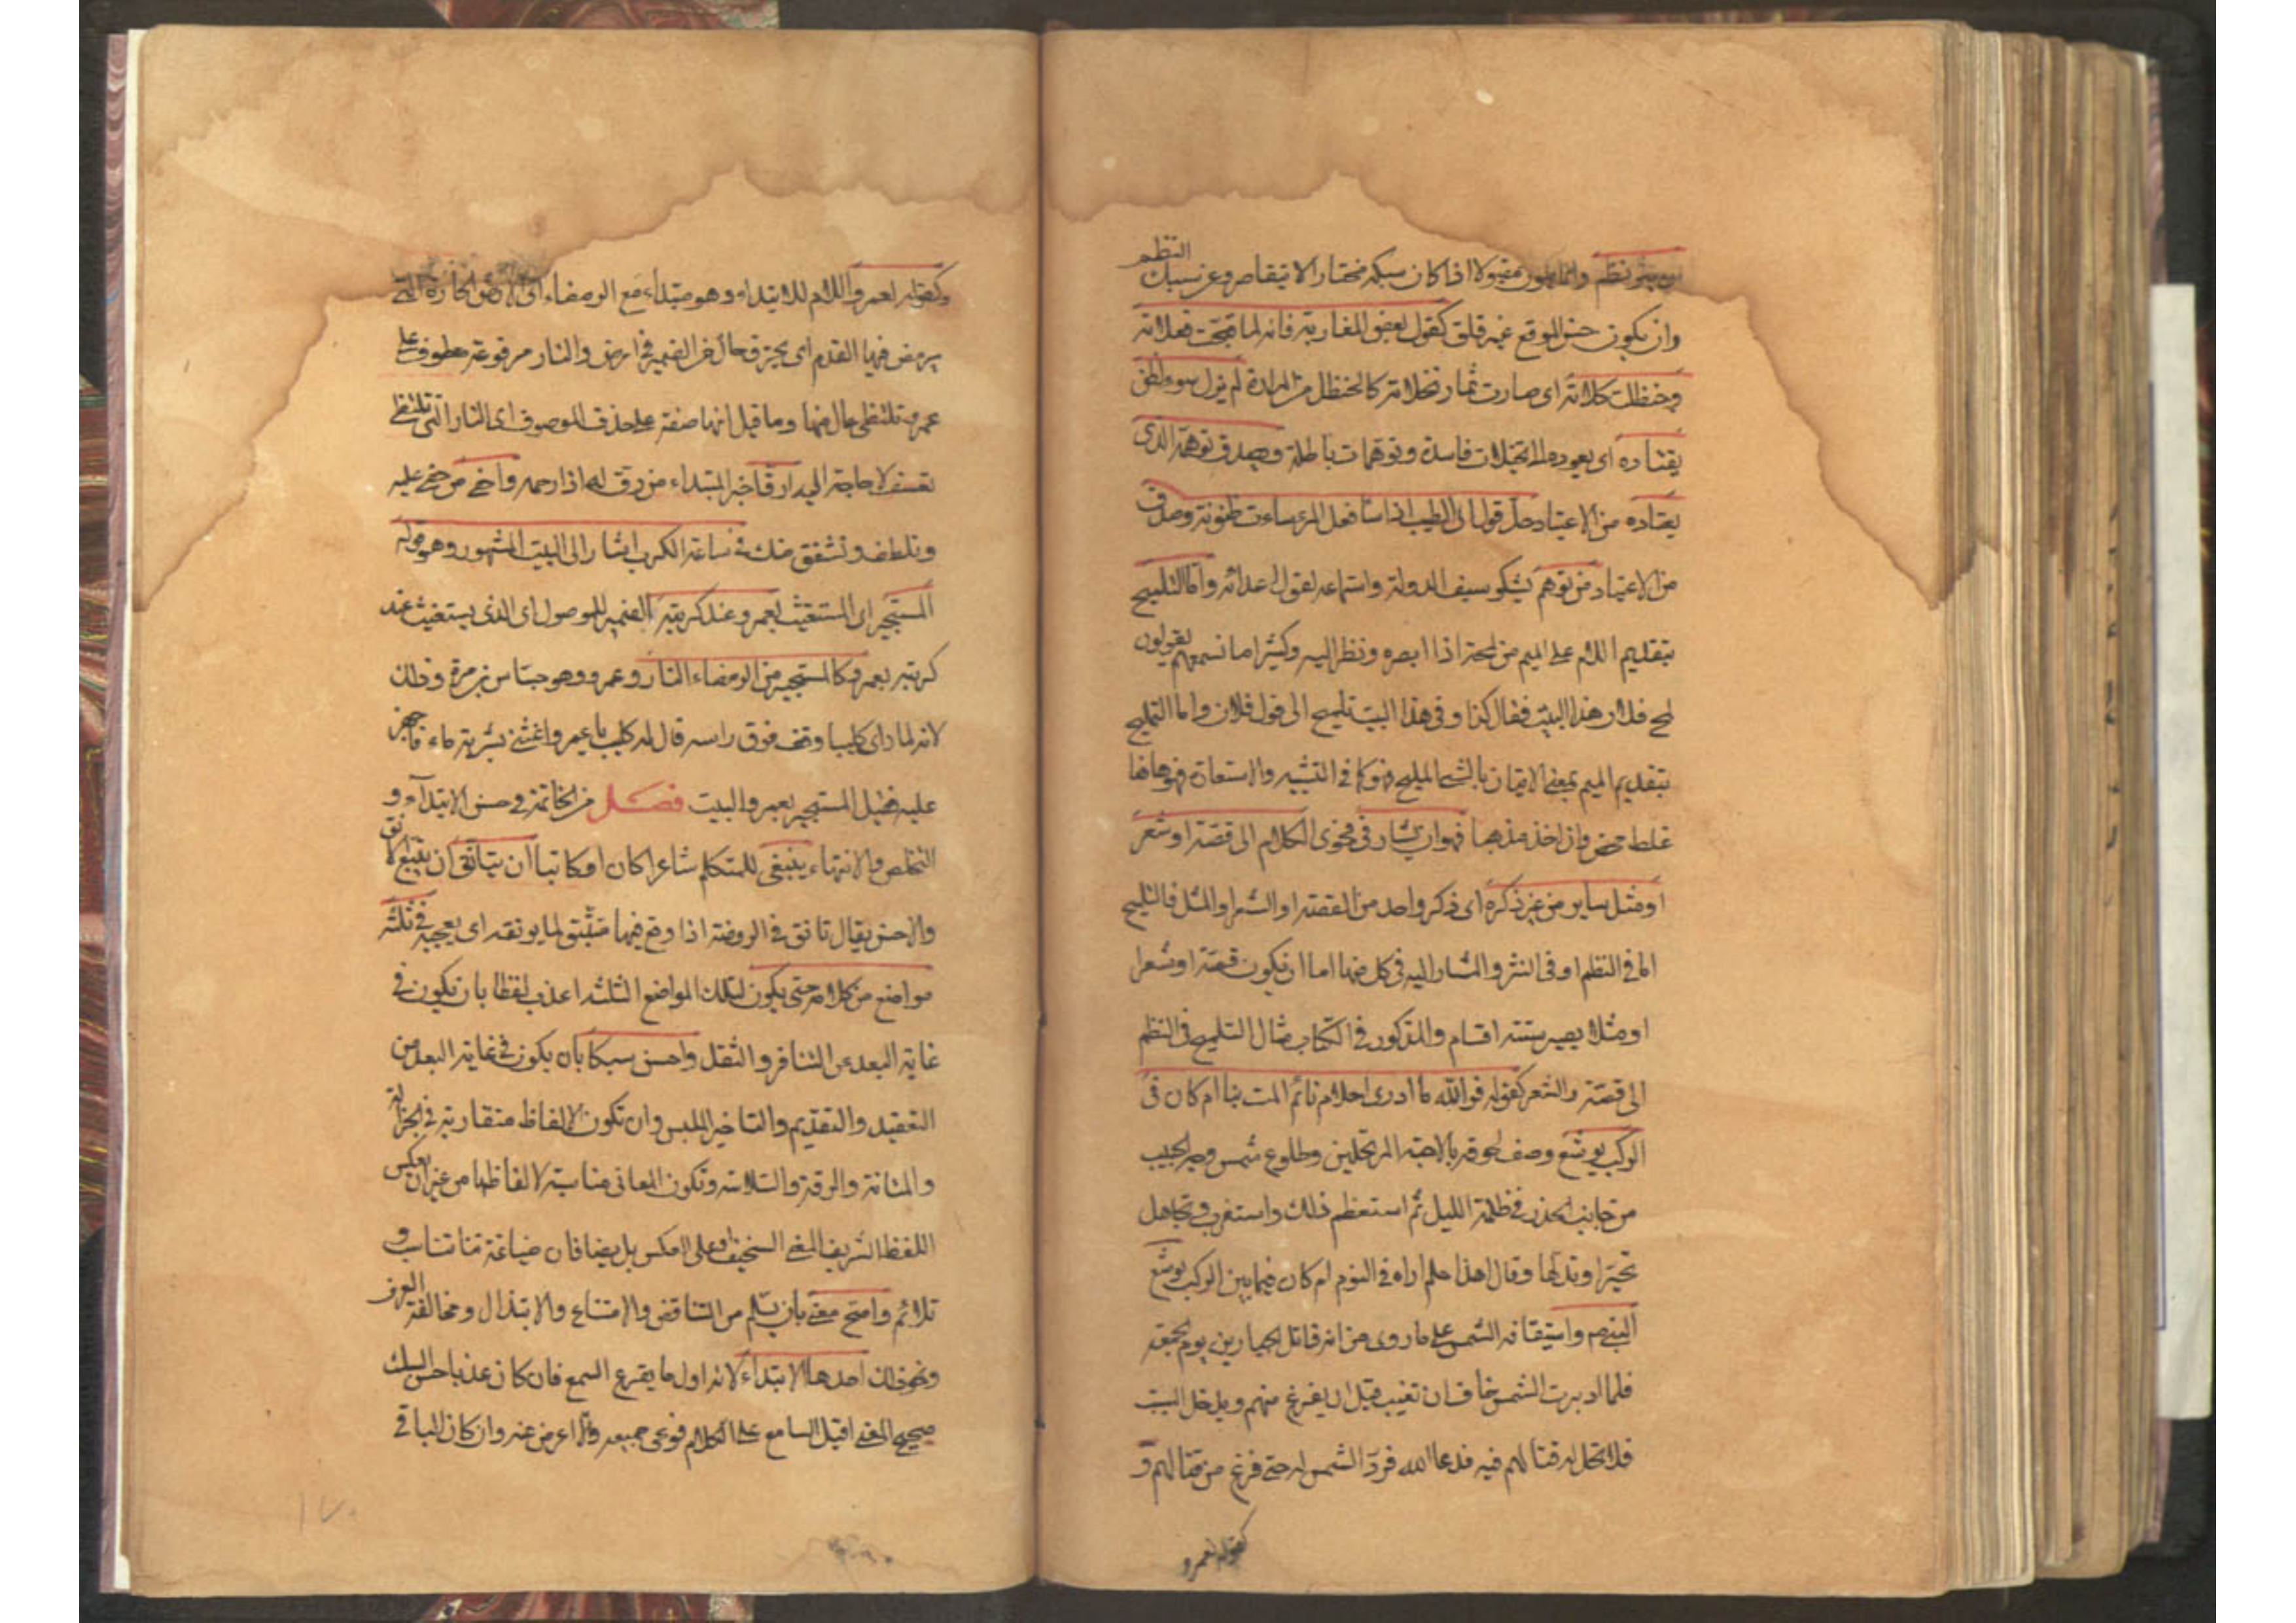 ان ينثر نظم وانما يكون مقبولا اذا كان سبكه مختارا لا يتقاصر عن سبك النظم
وان يكون حسن الموقع غير قلق كقول بعض المغاربة فانه لما قبحت فعلاته
وحنظلت نخلاته اى صارت ثمار نخلاته كالحنظل فى المرارة لم يزل سوء الظن
يقتاده اى يقوده الى تخيلات فاسدة وتوهمات باطلة ويصدق توهمه الذى
يعتاده من الاعتياد حل قول ابى الطيب اذا ساء فعل المرء ساءت ظنونه وصدق
من الاعتياد من توهم يشكو سيف الدولة واستماعه لقول اعدائه واما التلميح
بتقديم اللام على الميم من لمحه اذا ابصره ونظر اليه وكثيرا ما نسمعهم يقولون
لمح فلان هذا البيت فقال كذا وفى هذا البيت تلميح الى قول فلان واما التمليح
بتقديم الميم بمعنى الاتيان بالشئ المليح فهو كما فى التشبيه والاستعارة فهو هاهنا
غلط محض وان اخذ مذهبا فهو ان يشار فى فحوى الكلام الى قصة او شعر
او مثل ساير من غير ذكره اى ذكر واحد من القصة او الشعر او المثل فالتلميح
اما فى النظم او فى النثر والمشار اليه فى كل منهما اما ان يكون قصة او شعرا
او مثلا يصير ستة اقسام والمذكور فى الكتاب مثال التلميح فى النظم
الى قصة والشعر كقوله فوالله ما ادرى احلام نائم المت بنا ام كان فى
الركب يوشع وصف لحوقه بالاحبة المرتحلين وطلوع شمس وجه الحبيب
من جانب الخدر فى ظلمة الليل ثم استعظم ذلك واستغرب وتجاهل
تحيرا وتدلها وقال اهذا حلم اراه فى النوم ام كان فيما بين الركب يوشع
النبى م واستيقافه الشمس على ما روى من انه قاتل الجبارين يوم الجمعة
فلما ادبرت الشمس خاف ان تغيب قبل ان يفرغ منهم ويدخل السبت
فلا تحل له قتالهم فيه فدعا الله فرد الشمس له حتى فرغ من قتالهم و
كقوله لعمرو
وكقوله لعمرو واللام للابتداء وهو مبتداء مع الرمضاء اى الارض الحارة التى
يرمض فيها القدم اى يحترق حال من الضمير فى ارض والنار مرفوعة معطوف على
عمرو تلتظى حال منها وما قيل انها صفة على حذف الموصوف اى النار التى تلتظى
تعسف لا حاجة اليه ارق خبر المبتداء من رق له اذا رحمه واحفى من حفى عليه
وتلطف وتشفق منك فى ساعة الكرب اشار الى البيت المشهور وهو قوله
المستجير اى المستغيث بعمرو عند كربته الضمير للموصول اى الذى يستغيث عند
كربته بعمرو كالمستجير من الرمضاء بالنار وعمرو وهو جساس بن مرة وذلك
لانه لما رأى كليبا وقف فوق راسه قال له كليب يا عمرو اغثنى بشربة ماء فاجهز
عليه فقيل المستجير بعمرو البيت فصل من الخاتمة فى حسن الابتداء و
التخلص والانتهاء ينبغى للمتكلم شاعرا كان او كاتبا ان يتانق ان يتبع الانق
والاحسن يقال تانق فى الروضة اذا وقع فيها متتبعا لما يونقه اى يعجبه فى ثلثة
مواضع من كلامه حتى يكون تلك المواضع الثلثة اعذب لفظا بان تكون فى
غاية البعد عن التنافر والثقل واحسن سبكا بان يكون فى غاية البعد من
التعقيد والتقديم والتاخير الملبس وان تكون الالفاظ متقاربة فى الجزالة
والمتانة والرقة والسلاسة وتكون المعانى مناسبة لالفاظها من غير ان يعكس
اللفظ الشريف المعنى السخيف او على العكس بل يصاغان صياغة تناسب و
تلائم واصح معنى بان يسلم من التناقض والامتناع والابتذال ومخالفة العرف
ونحو ذلك احدها الابتداء لانه اول ما يقرع السمع فان كان عذبا حسن السبك
صحيح المعنى اقبل السامع على الكلام فوعى جميعه والا اعرض عنه وان كان الباقى
١٧٠